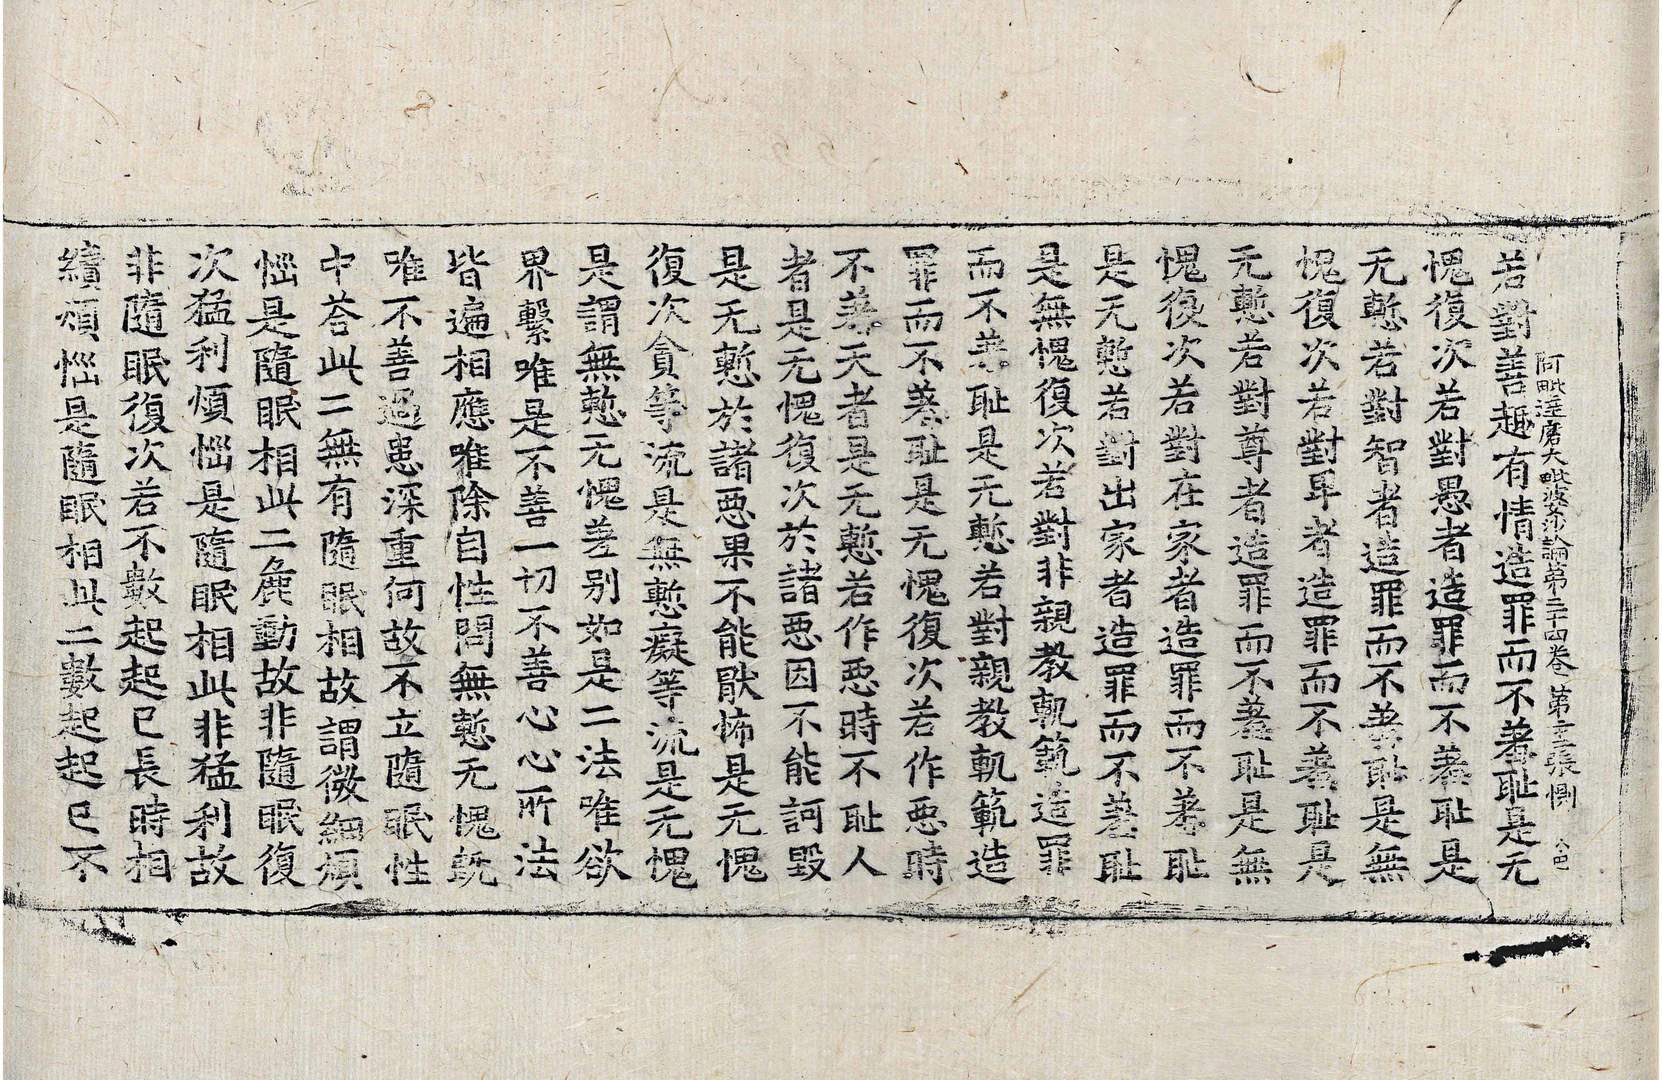 阿毗達磨大毗婆沙論第三十四卷 第十三張 惻
若對善趣有情造罪而不羞恥是无
愧復次若對愚者造罪而不羞恥是
无慙若對智者造罪而不羞恥是無
愧復次若對卑者造罪而不羞恥是
无慙若對尊者造罪而不羞恥是無
愧復次若對在家者造罪而不羞恥
是无慙若對出家者造罪而不羞恥
是無愧復次若對非親教軌範造罪
而不羞恥是无慙若對親教軌範造
罪而不羞恥是无愧復次若作惡時
不羞天者是无慙若作惡時不恥人
者是无愧復次於諸惡因不能訶毀
是无慙於諸惡果不能猒怖是无愧
復次貪等流是無慙癡等流是无愧
是謂無慙无愧差别如是二法唯欲
界繫唯是不善一切不善心心所法
皆遍相應唯除自性問無慙无愧旣
唯不善過患深重何故不立隨眠性
中荅此二無有隨眠相故謂微細煩
惱是隨眠相此二麁動故非隨眠復
次猛利煩惱是隨眠相此非猛利故
非隨眠復次若不數起起已長時相
續煩惱是隨眠相此二數起起已不